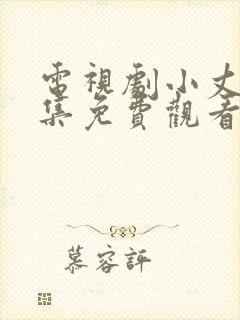 電視劇小丈
集免費觀看
慕容評